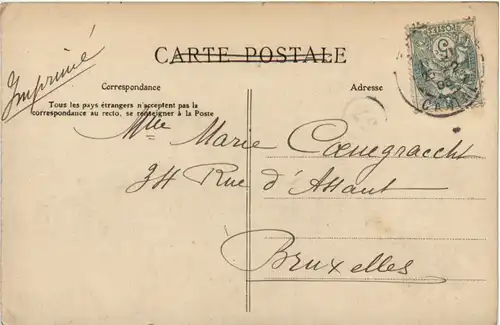 Imprimé
CARTE POSTALE
Correspondance
Adresse
Tous les pays étrangers n'acceptent pas la
correspondance au recto, se renseigner à la Poste
Mlle Marie Coenegracht
34 Rue d'Assaut
Bruxelles